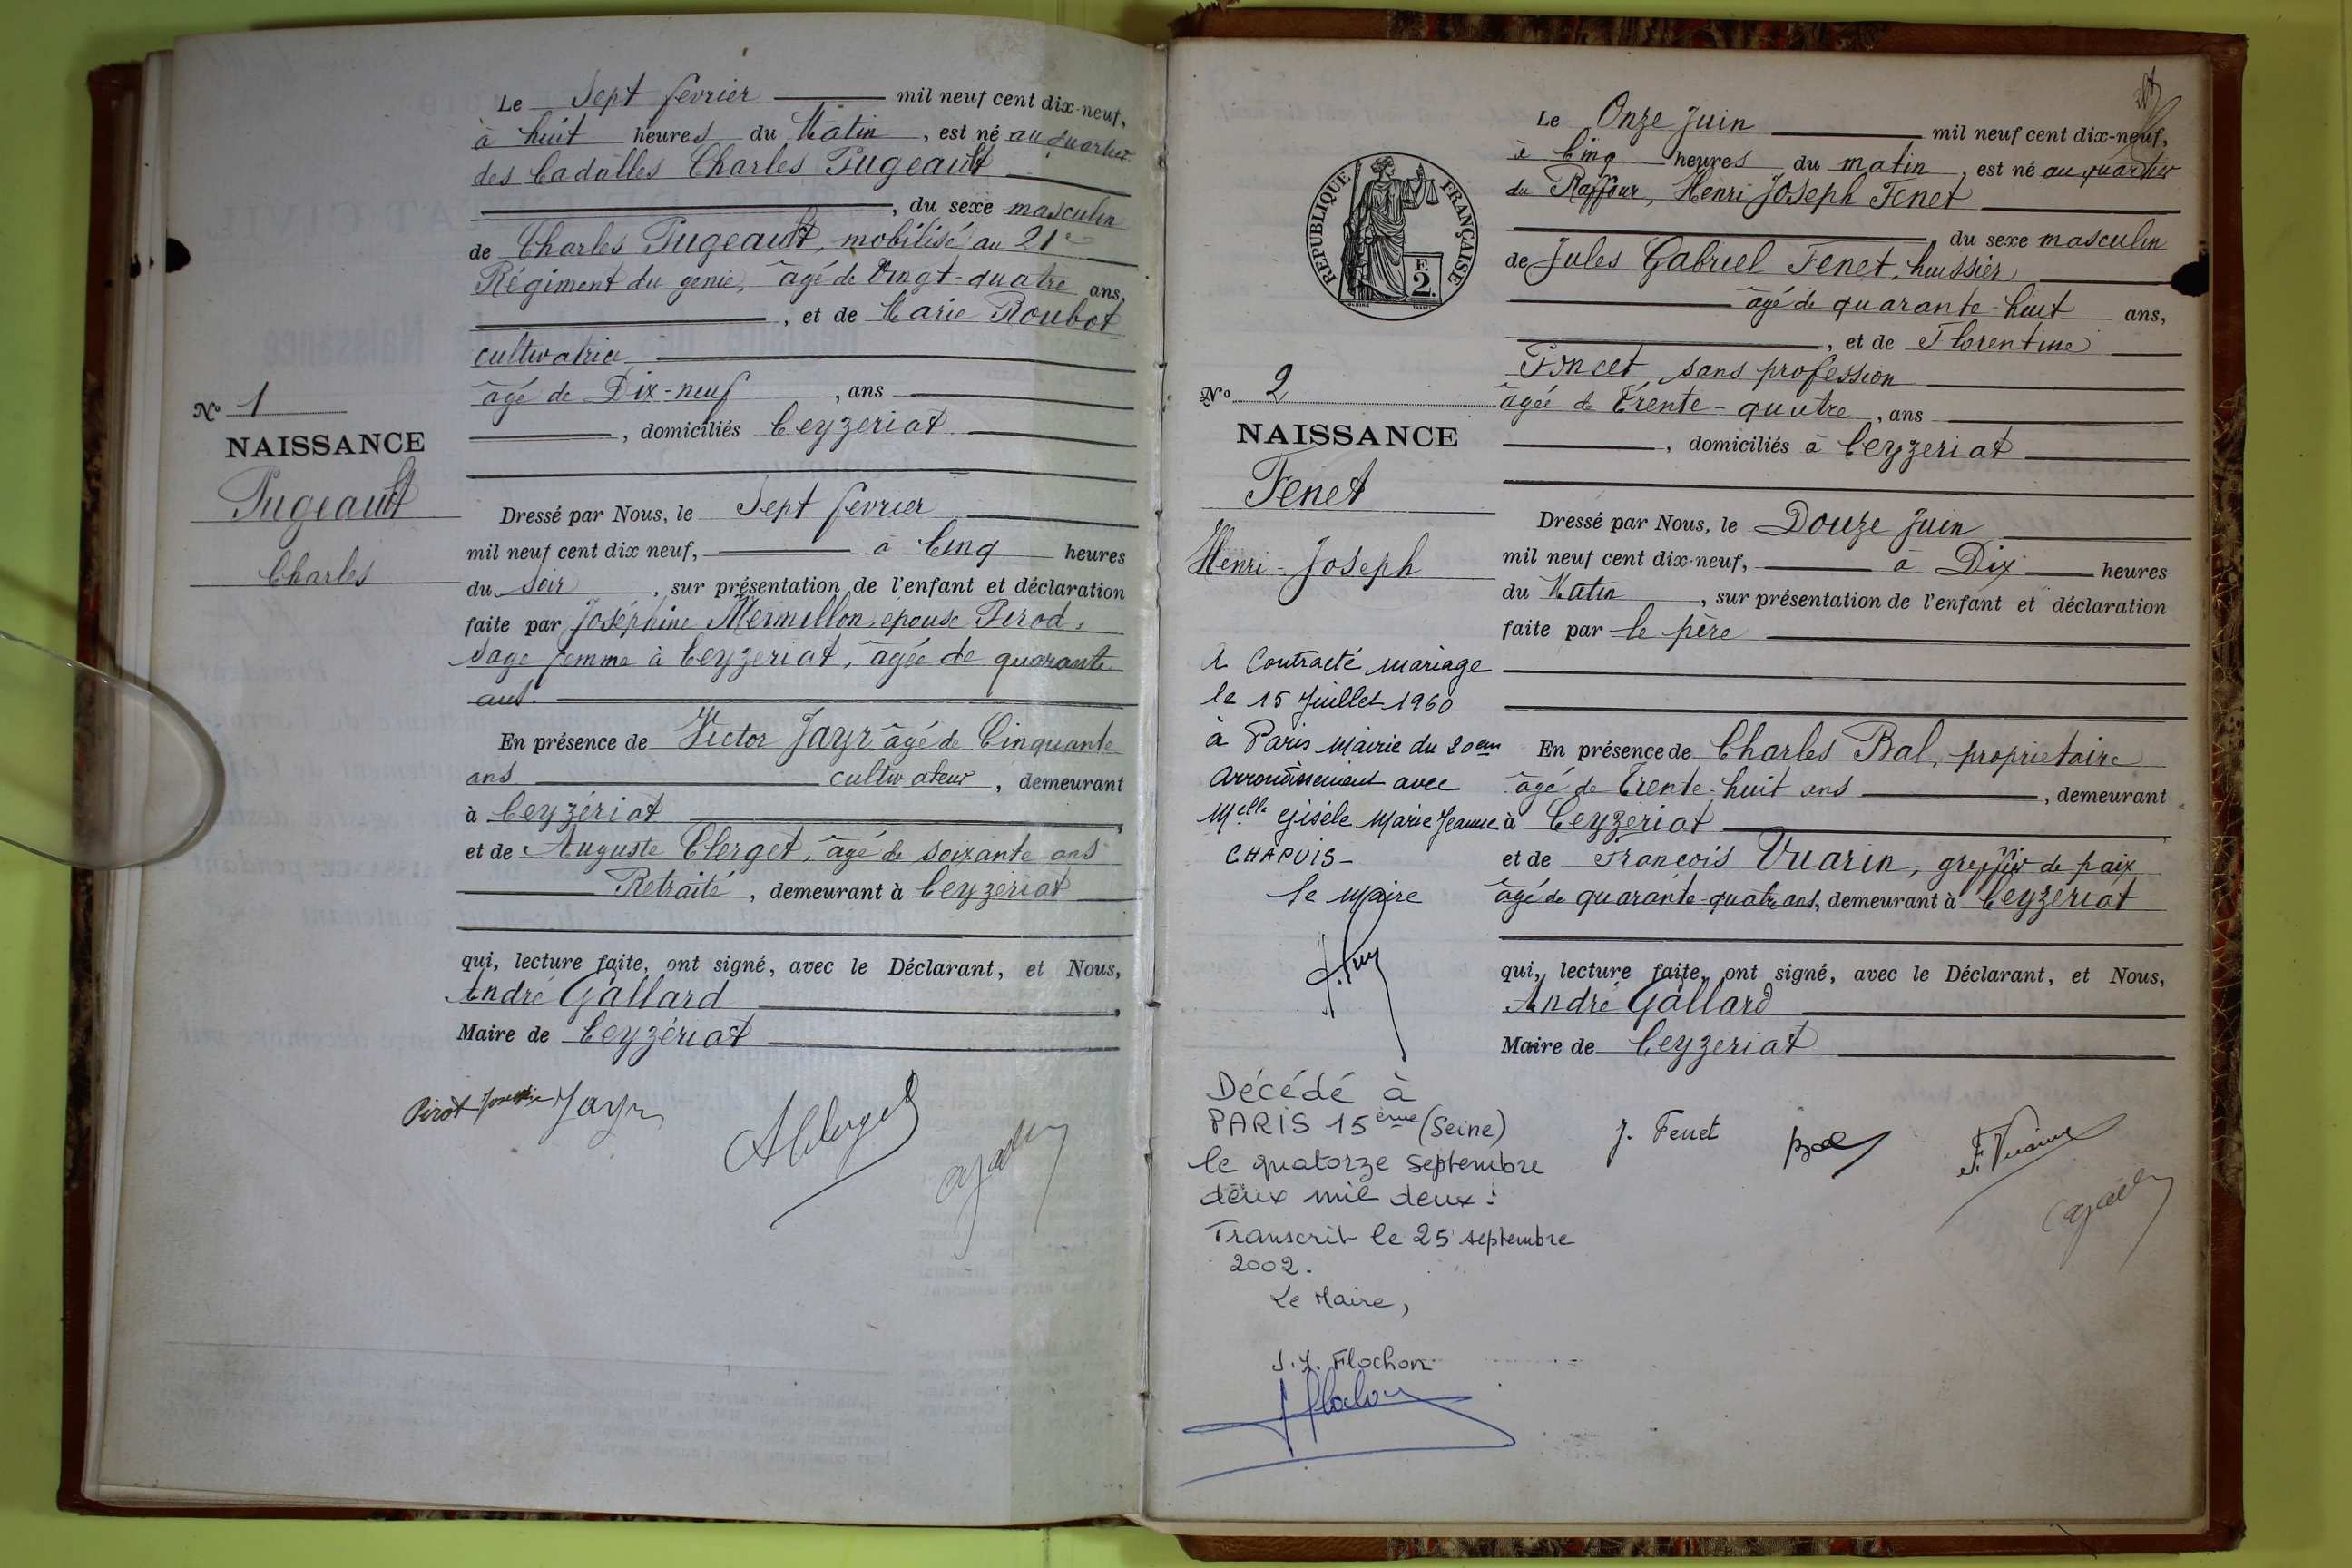 Le Sept février mil neuf cent dix-neuf,
à huit heures du Matin, est né au quartier
des Cadalles Charles Pugeault
, du sexe masculin
de Charles Pugeault, mobilisé au 21e
Régiment du génie, âgé de Vingt-quatre ans,
, et de Marie Roubot
cultivatrice
âgé de Dix-neuf, ans
, domiciliés Ceyzeriat
No 1
NAISSANCE
Pugeault
Charles
Dressé par Nous, le Sept février
mil neuf cent dix neuf, à Cinq heures
du soir, sur présentation de l'enfant et déclaration
faite par Joséphine Mermillon, épouse Perod,
sage femme à Ceyzeriat, âgée de quarante
ans.
En présence de Victor Jayr âgé de Cinquante
ans cultivateur, demeurant
à Ceyzériat
et de Auguste Clerget, âgé de soixante ans
Retraité, demeurant à Ceyzériat
qui, lecture faite, ont signé, avec le Déclarant, et Nous,
André Gallard
Maire de Ceyzériat
Pirot Josephine Jayr
AClerget
Le Onze Juin mil neuf cent dix-neuf,
à Cinq heures du matin, est né au quartier
du Raffour, Henri Joseph Fenet
du sexe masculin
de Jules Gabriel Fenet, huissier
âgé de quarante-huit ans,
, et de Florentine
Poncet, sans profession
âgée de Trente-quatre, ans
, domiciliés à Ceyzeriat
RÉPUBLIQUE FRANÇAISE
F.
2.
No 2
NAISSANCE
Fenet
Henri-Joseph
Dressé par Nous, le Douze Juin
mil neuf cent dix-neuf, à Dix heures
du Matin, sur présentation de l'enfant et déclaration
faite par le père
En présence de Charles Bal, proprietaire
âgé de Trente-huit ans, demeurant
à Ceyzeriat
et de François Vuarin, greffier de paix
âgé de quarante-quatre ans, demeurant à Ceyzériat
qui, lecture faite, ont signé, avec le Déclarant, et Nous,
André Gallard
Maire de Ceyzeriat
A Contracté mariage
le 15 Juillet 1960
à Paris Mairie du 20em
Arrondissement avec
Melle Gisèle Marie Jeanne
CHAPUIS-
le Maire
Décédé à
PARIS 15ème (Seine)
le quatorze Septembre
deux mil deux.
Transcrit le 25 septembre
2002.
Le Maire,
J.Y. Flochon
J. Fenet Bal F. Vuarin